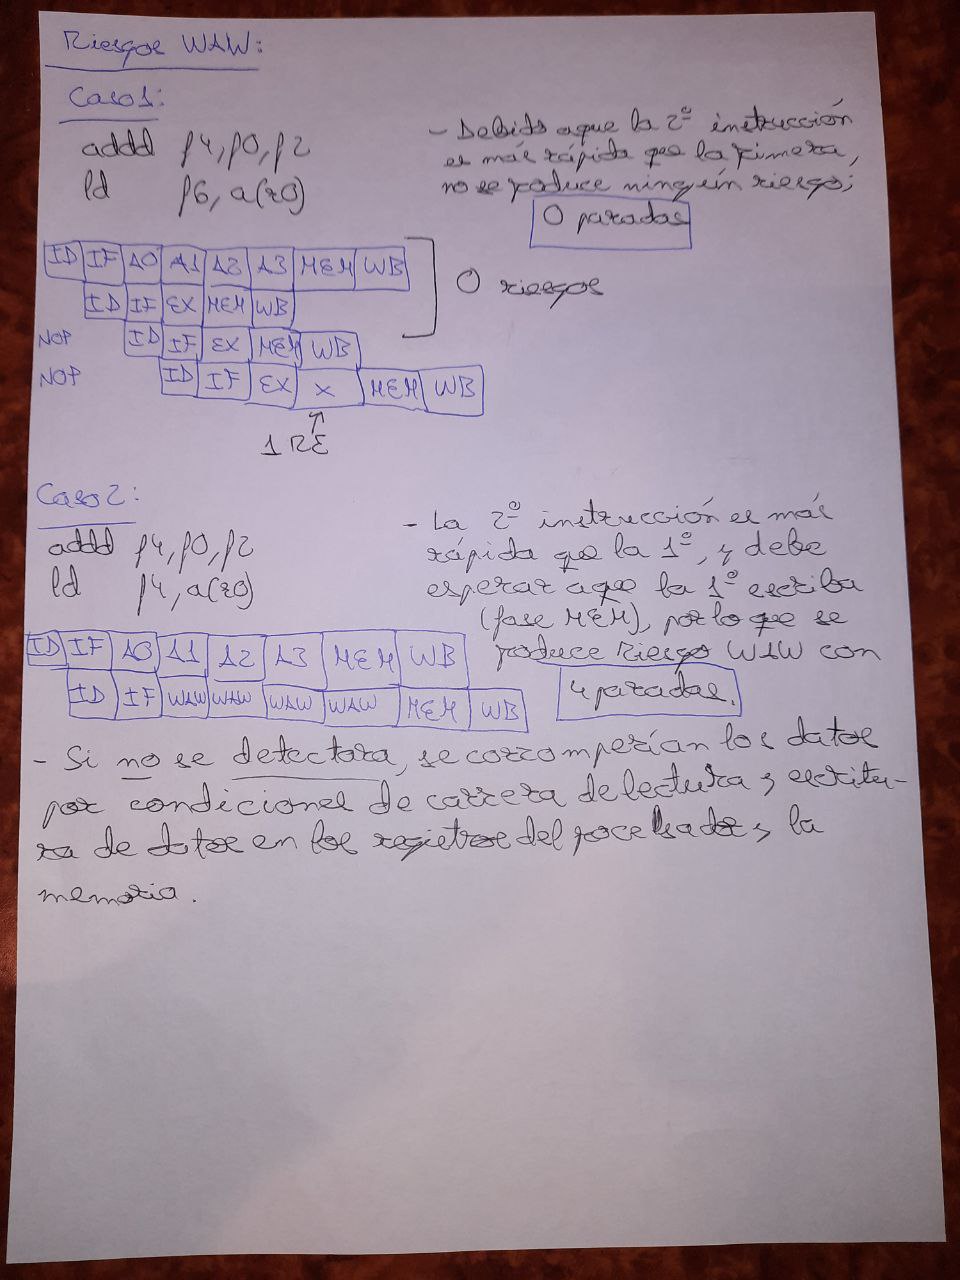 Riesgos WAW:
Caso 1:
addd f4, f0, f2
ld f6, a(r0)
- Debido a que la 2º instrucción
es más rápida que la primera,
no se produce ningún riesgo;
0 paradas
ID IF A0 A1 A2 A3 MEM WB
ID IF EX MEM WB
NOP ID IF EX MEM WB
NOP ID IF EX X MEM WB
0 riesgos
1 RE
Caso 2:
addd f4, f0, f2
ld f4, a(r0)
- La 2º instrucción es más
rápida que la 1º, y debe
esperar a que la 1º escriba
(fase MEM), por lo que se
produce Riesgo WAW con
4 paradas.
ID IF A0 A1 A2 A3 MEM WB
ID IF WAW WAW WAW WAW MEM WB
- Si no se detectara, se corromperían los datos
por condiciones de carrera de lectura y escritu-
ra de datos en los registros del procesador y la
memoria.